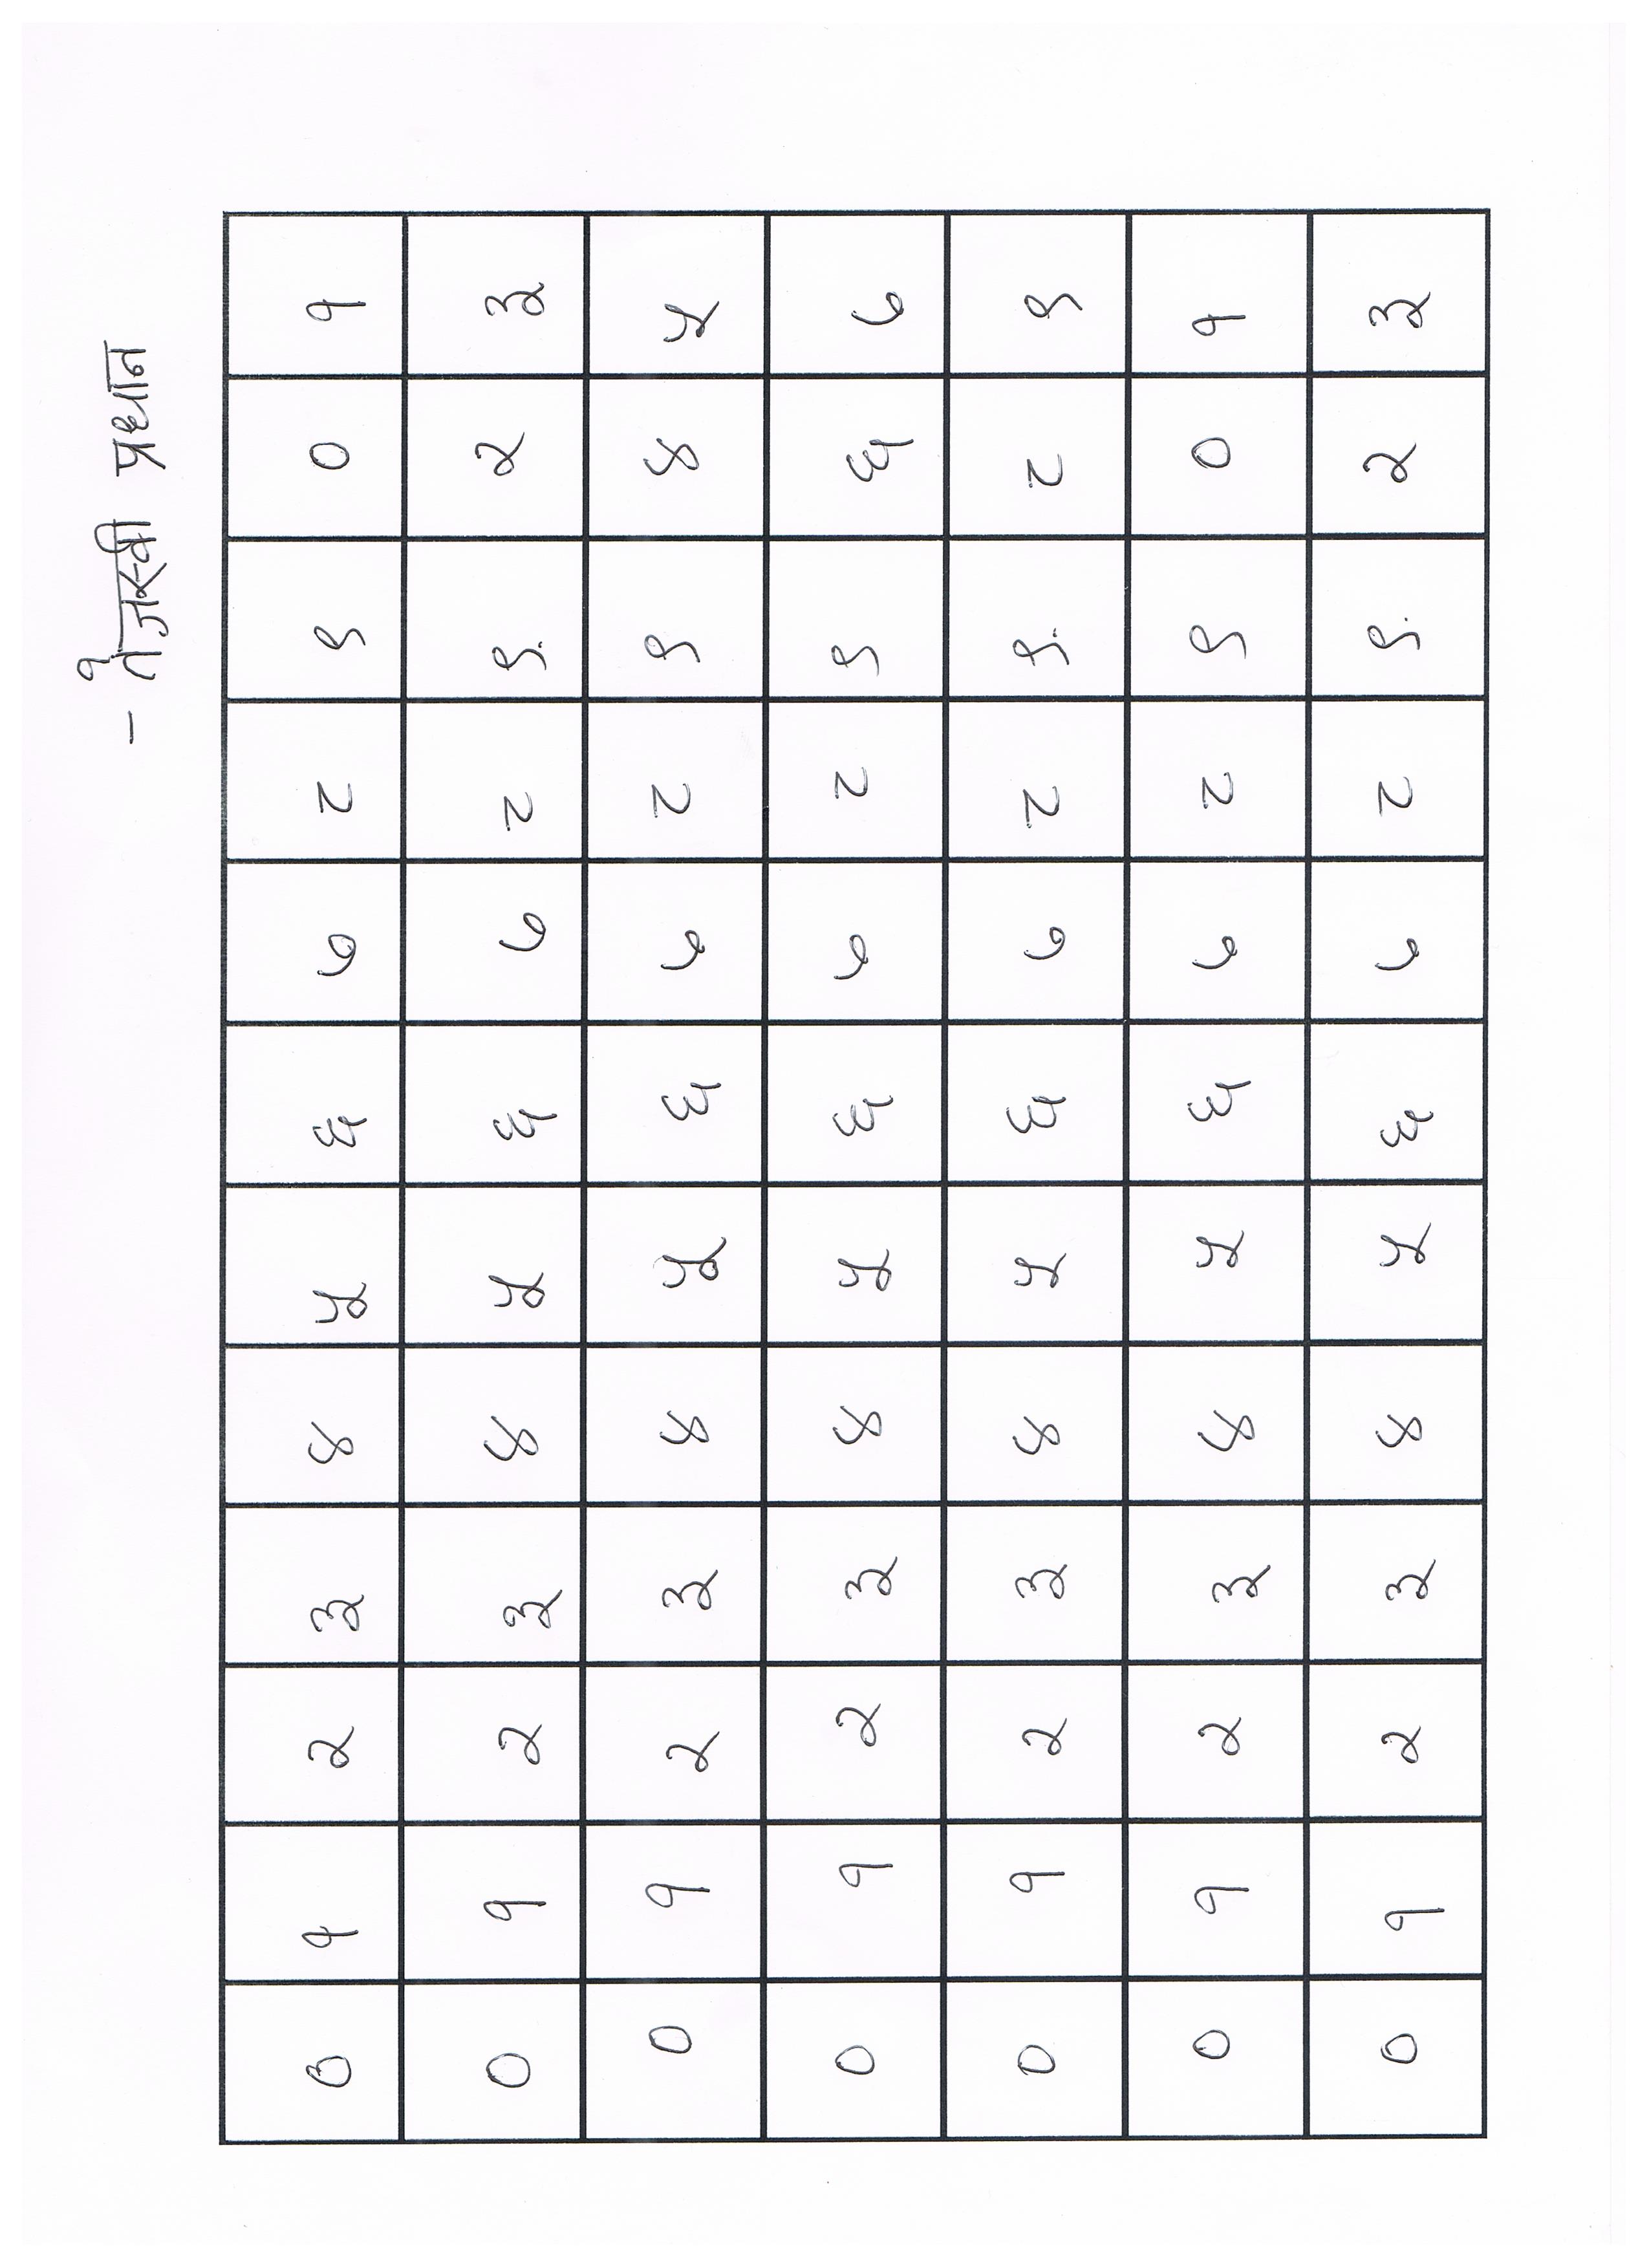 - तेजस्वी प्रधान
० १ २ ३ ४ ५ ६ ७ ८ ९ ० १
० १ २ ३ ४ ५ ६ ७ ८ ९ २ ३
० १ २ ३ ४ ५ ६ ७ ८ ९ ४ ५
० १ २ ३ ४ ५ ६ ७ ८ ९ ६ ७
० १ २ ३ ४ ५ ६ ७ ८ ९ ८ ९
० १ २ ३ ४ ५ ६ ७ ८ ९ ० १
० १ २ ३ ४ ५ ६ ७ ८ ९ २ ३